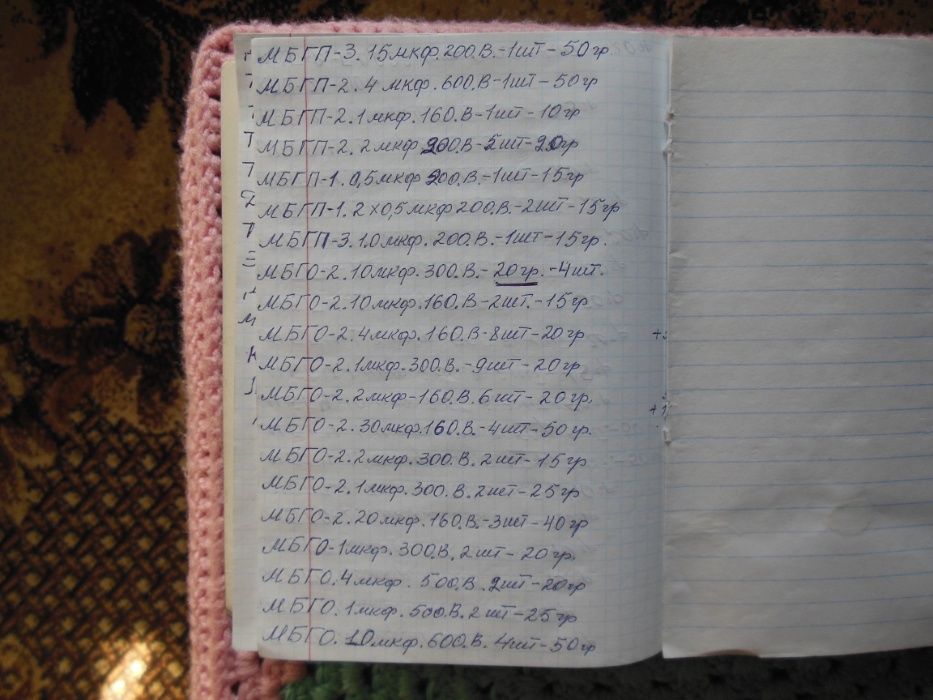 МБГП-3.15мкф.200.В.-1шт-50гр
МБГП-2.4мкф.600.В-1шт-50гр
МБГП-2.1мкф.160.В-1шт-10гр
МБГП-2.2мкф.200.В-5шт-20гр
МБГП-1.0,5мкф.200.В.-1шт-15гр
МБГП-1.2х0,5мкф200.В.-2шт-15гр
МБГП-3.1.0мкф.200.В.-1шт-15гр.
МБГО-2.10мкф.300.В.-20гр.-4шт.
МБГО-2.10мкф.160.В-2шт.-15гр
МБГО-2.4мкф.160.В-8шт-20гр
МБГО-2.1мкф.300.В.-9шт-20гр
МБГО-2.2мкф-160.В.6шт-20гр.
МБГО-2.30мкф.160.В.-4шт-50гр.
МБГО-2.2мкф.300.В.2шт-15гр
МБГО-2.1мкф.300.В.2шт-25гр
МБГО-2.20мкф.160.В.-3шт-40гр
МБГО-1мкф.300.В.2шт-20гр.
МБГО.4мкф.500.В.2шт-20гр
МБГО.1мкф.500.В.2шт-25гр
МБГО.10мкф.600.В.4шт-50гр